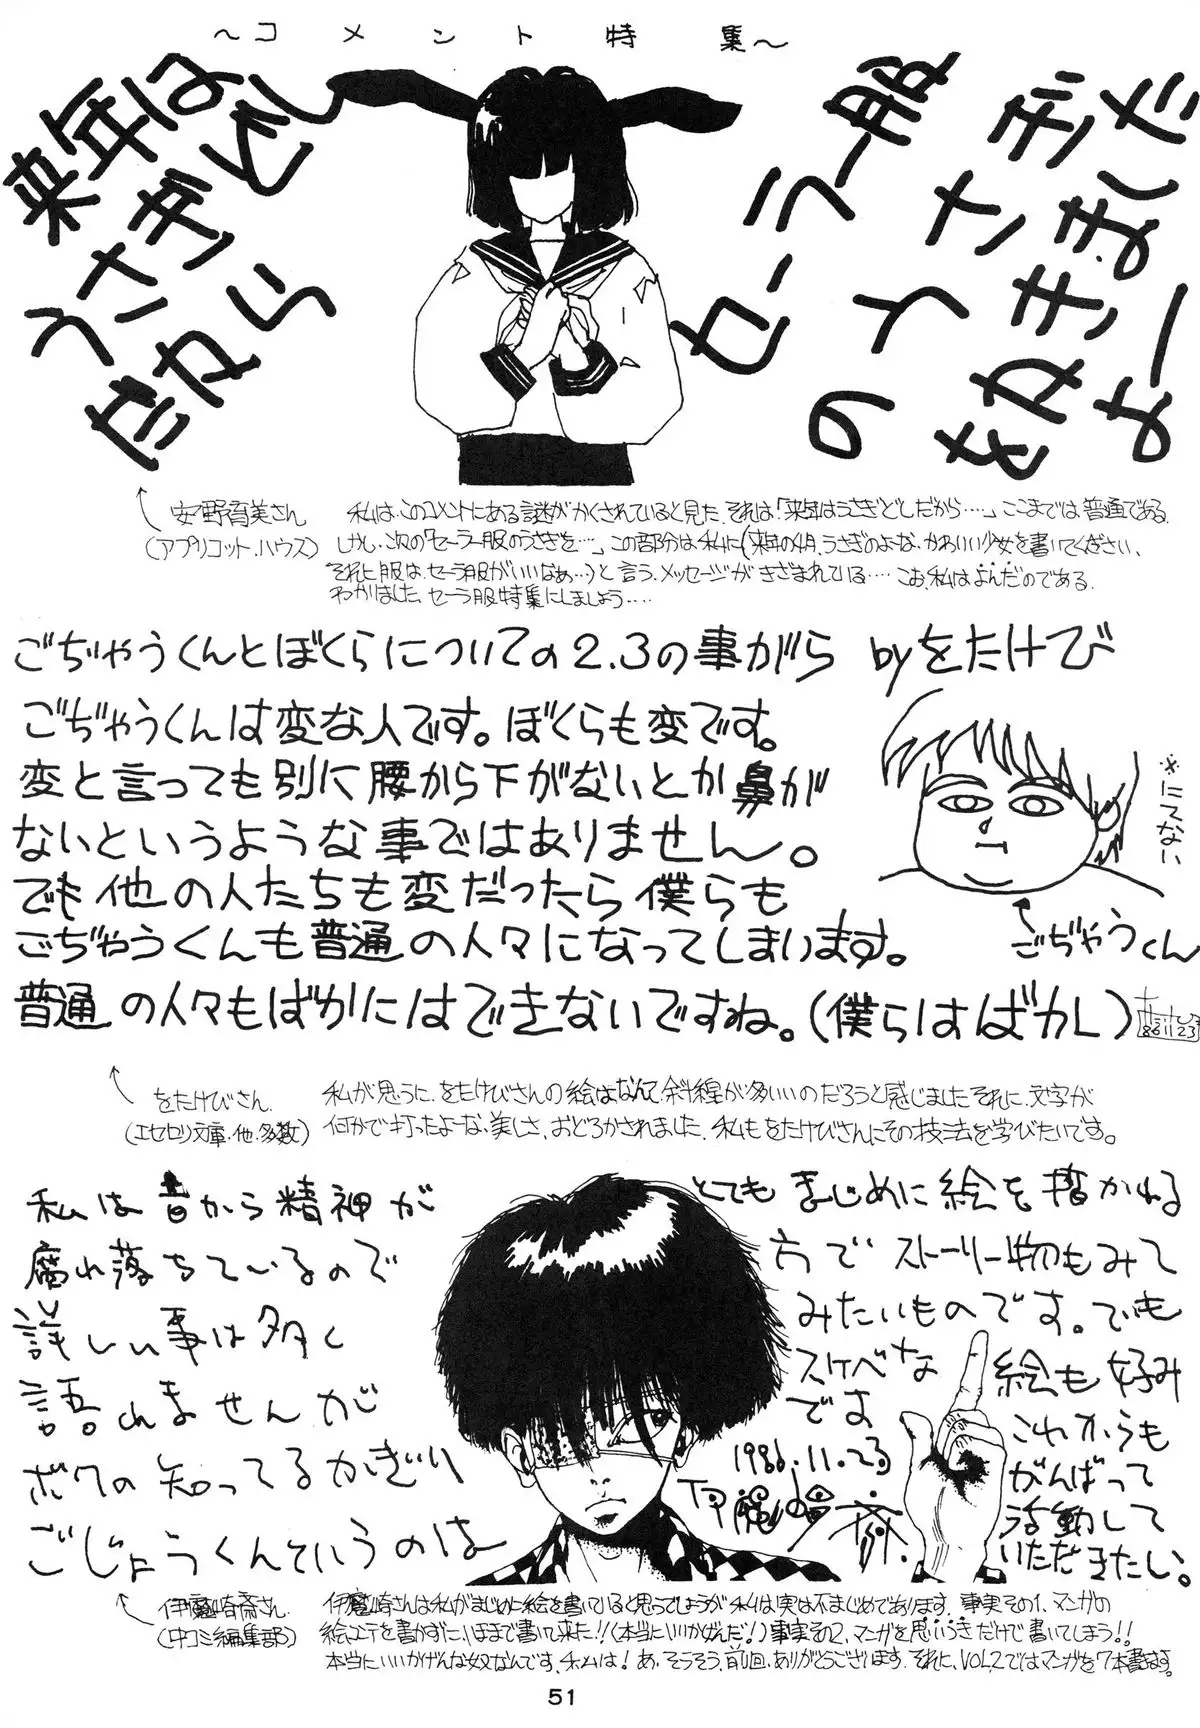 ～コメント特集～
来年は
うさぎどし
だから
セーラー服
のうさぎ
のをねきまだ
よー
安野育美さん
(アプリコット・ハウス)
私は、このコメントにある謎がかくされていると見た。それは「来年はうさぎどしだから……」ここまでは普通である。
しかし、次の「セーラー服のうさぎを…」この部分は私に(来年の4月、うさぎのよーな、かわいい少女を書いてください、
それに服は、セーラ服がいいなぁ…)と言う、メッセージがきざまれている……こお、私はよんだのである。
わかりました、セーラ服特集にしましょう……
ごぢゃうくんとぼくらについての2.3の事がら byをたけび
ごぢゃうくんは変な人です。ぼくらも変です。
変と言っても別に腰から下がないとか鼻が
ないというような事ではありません。
でも他の人たちも変だったら僕らも
ごぢゃうくんも普通の人々になってしまいます。
普通の人々もばかにはできないですね。(僕らはばかし)
86.11.23
※にてない
ごぢゃうくん
をたけびさん
(エセセリ文庫・他・多数)
私が思うに、をたけびさんの絵はなんて、斜線が多いいのだろうと感じました。それに、文字が
何かで打ったよーな、美しさ、おどろかされました。私もをたけびさんにその技法を学びたいです。
私は昔から精神が
腐れ落ちているので
詳しい事は多く
語れませんが
ボクの知ってるかぎり
ごじょうくんていうのは
とてもまじめに絵を描かれる
方でストーリー物もみて
みたいものです。でも
スケベな絵も好み
です これからも
がんばって
活動して
いただきたい。
1986.11.23
伊魔崎斎
伊魔崎斎さん
(中コミ編集部)
伊魔崎さんは私がまじめに絵を書いていると思うでしょうが私は実は不まじめであります、事実その1、マンガの
絵コンテを書かずに、1ぽまで書いて来た!!(本当にいいかげんだ!)事実その2、マンガを思いつきだけで書いてしまう!!
本当にいいかげんな奴なんです、私は!あ、そうそう、前回、ありがとうございます。それに、VOL.2ではマンガを7本書きます。
51